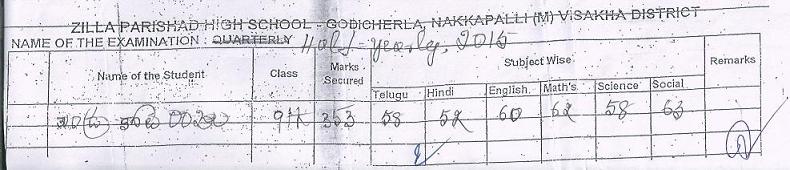 ZILLA PARISHAD HIGH SCHOOL - GODICHERLA, NAKKAPALLI (M) VISAKHA DISTRICT
NAME OF THE EXAMINATION : QUARTERLY Half-yearly, 2015
Name of the Student Class Marks Secured Subject Wise Remarks
Telugu Hindi English. Math's Science Social
9th 353 58 52 60 62 58 63